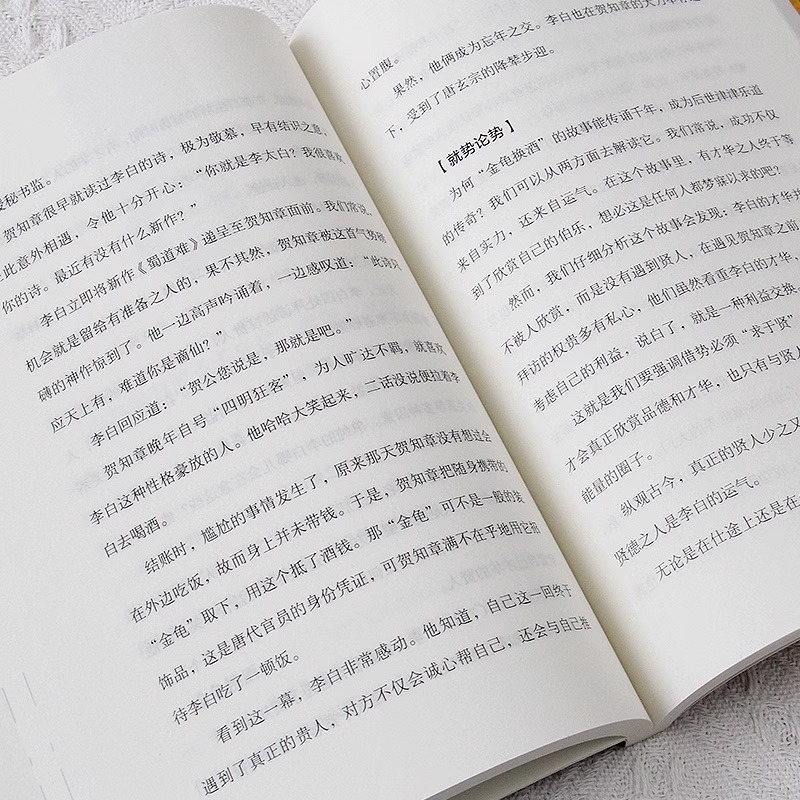 授秘书监。
贺知章很早就读过李白的诗，极为敬慕，早有结识之意，
此意外相遇，令他十分开心：“你就是李太白？我很喜欢
你的诗。最近有没有什么新作？”
李白立即将新作《蜀道难》递呈至贺知章面前。我们常说，
机会就是留给有准备之人的，果不其然，贺知章被这首气势磅
礴的神作惊到了。他一边高声吟诵着，一边感叹道：“此诗只
应天上有，难道你是谪仙？”
李白回应道：“贺公您说是，那就是吧。”
贺知章晚年自号“四明狂客”，为人旷达不羁，就喜欢
李白这种性格豪放的人。他哈哈大笑起来，二话没说便拉着李
白去喝酒。
结账时，尴尬的事情发生了，原来那天贺知章没有想过会
在外边吃饭，故而身上并未带钱。于是，贺知章把随身携带的
“金龟”取下，用这个抵了酒钱。那“金龟”可不是一般的装
饰品，这是唐代官员的身份凭证，可贺知章满不在乎地用它招
待李白吃了一顿饭。
看到这一幕，李白非常感动。他知道，自己这一回终于
遇到了真正的贵人，对方不仅会诚心帮自己，还会与自己推
心置腹。
果然，他俩成为忘年之交。李白也在贺知章的大力举荐
下，受到了唐玄宗的降辇步迎。
【就势论势】
为何“金龟换酒”的故事能传诵千年，成为后世津津乐道
的传奇？我们可以从两方面去解读它。我们常说，成功不仅
来自实力，还来自运气。在这个故事里，有才华之人终于等
到了欣赏自己的伯乐，想必这是任何人都梦寐以求的吧？
然而，我们仔细分析这个故事会发现：李白的才华并
不被人欣赏，而是没有遇到贤人，在遇见贺知章之前
拜访的权贵多有私心，他们虽然看重李白的才华，
考虑自己的利益，说白了，就是一种利益交换。
这就是我们要强调借势必须“来于贤”
才会真正欣赏品德和才华，也只有与贤人
能量的圈子。
纵观古今，真正的贤人少之又
贤德之人是李白的运气。
无论是在仕途上还是在